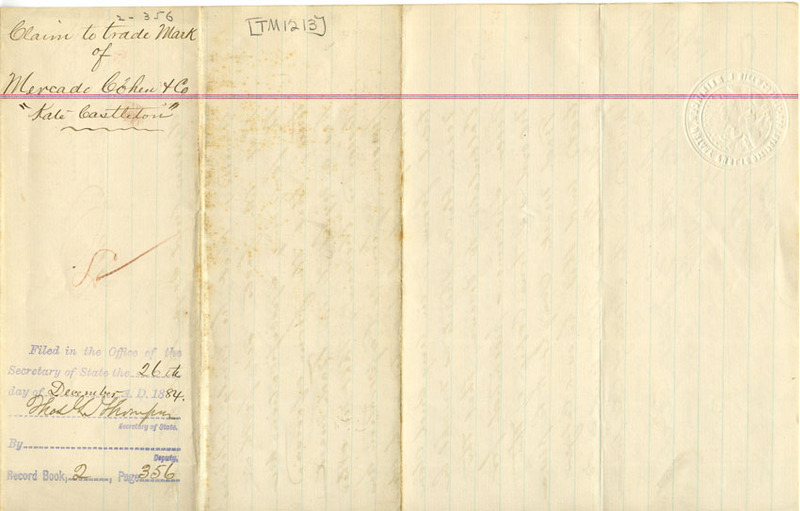 2-356
Claim to trade Mark
of
Mercado Cohen & Co
"Kate Castleton"
[TM1213]
Filed in the Office of the
Secretary of State the 26th
day of December A. D. 1884.
Thos L Thompson
Secretary of State.
By
Deputy.
Record Book, 2, Page 356